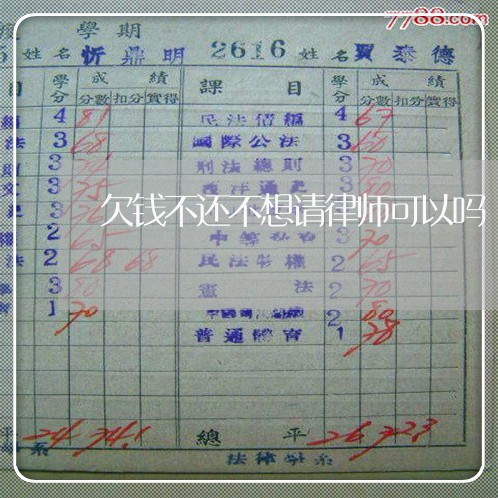 7788.com
學期
姓名 忻鼎明 2616 姓名 賈泰德
目 學分 成績 課目 學分 成績
分數 扣分 實得 分數 扣分 實得
4 81 民法債編 4 67
法 3 68 國際公法 3 60
3 刑法總則 3 70
3 75 西洋通史 3 80
欠钱不还不想请律师可以吗
2 65 3 70
法 2 68 68 民法物權 2 65
3 80 憲法 2 70
1 70 2 80
普通體育 1 78
平 24 74.1 總平 26 72.3
系 法律學系